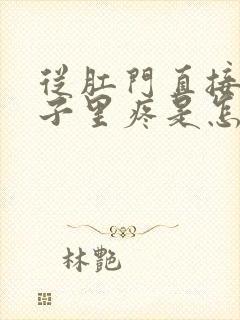 從肛門直接
子里疼是怎
林艷